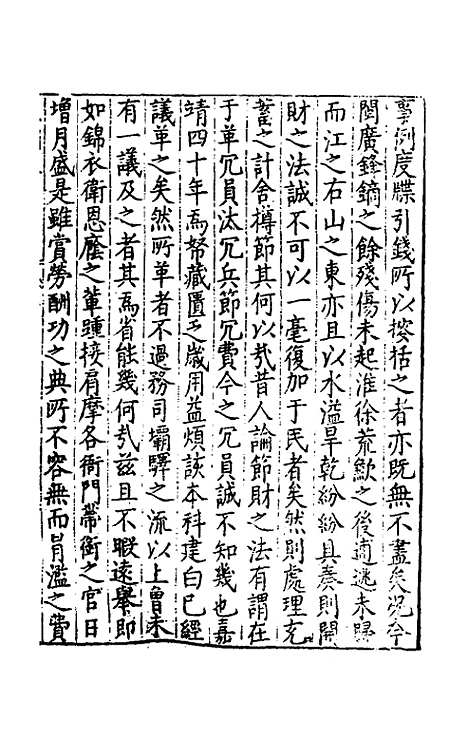 事例度牒引錢所以按括之者亦既無不盡矣况今
閩廣鋒鏑之餘殘傷未起淮徐荒歉之後逋逃未歸
而江之右山之東亦且以水溢旱乾紛紛且奏則開
財之法誠不可以一毫復加于民者矣然則處理充
蓄之計舍樽節其何以㢤昔人論節財之法有謂在
于革冗員汰冗兵節冗費今之冗員誠不知幾也嘉
靖四十年爲帑藏匱乏歲用益煩該本科建白已經
議革之矣然所革者不過務司壩驛之流以上曾未
有一議及之者其爲省能幾何㢤兹且不暇遠舉即
如錦衣衛恩廕之輩踵接肩摩各衙門帶銜之官日
增月盛是雖賞勞酬功之典所不容無而冐濫之費